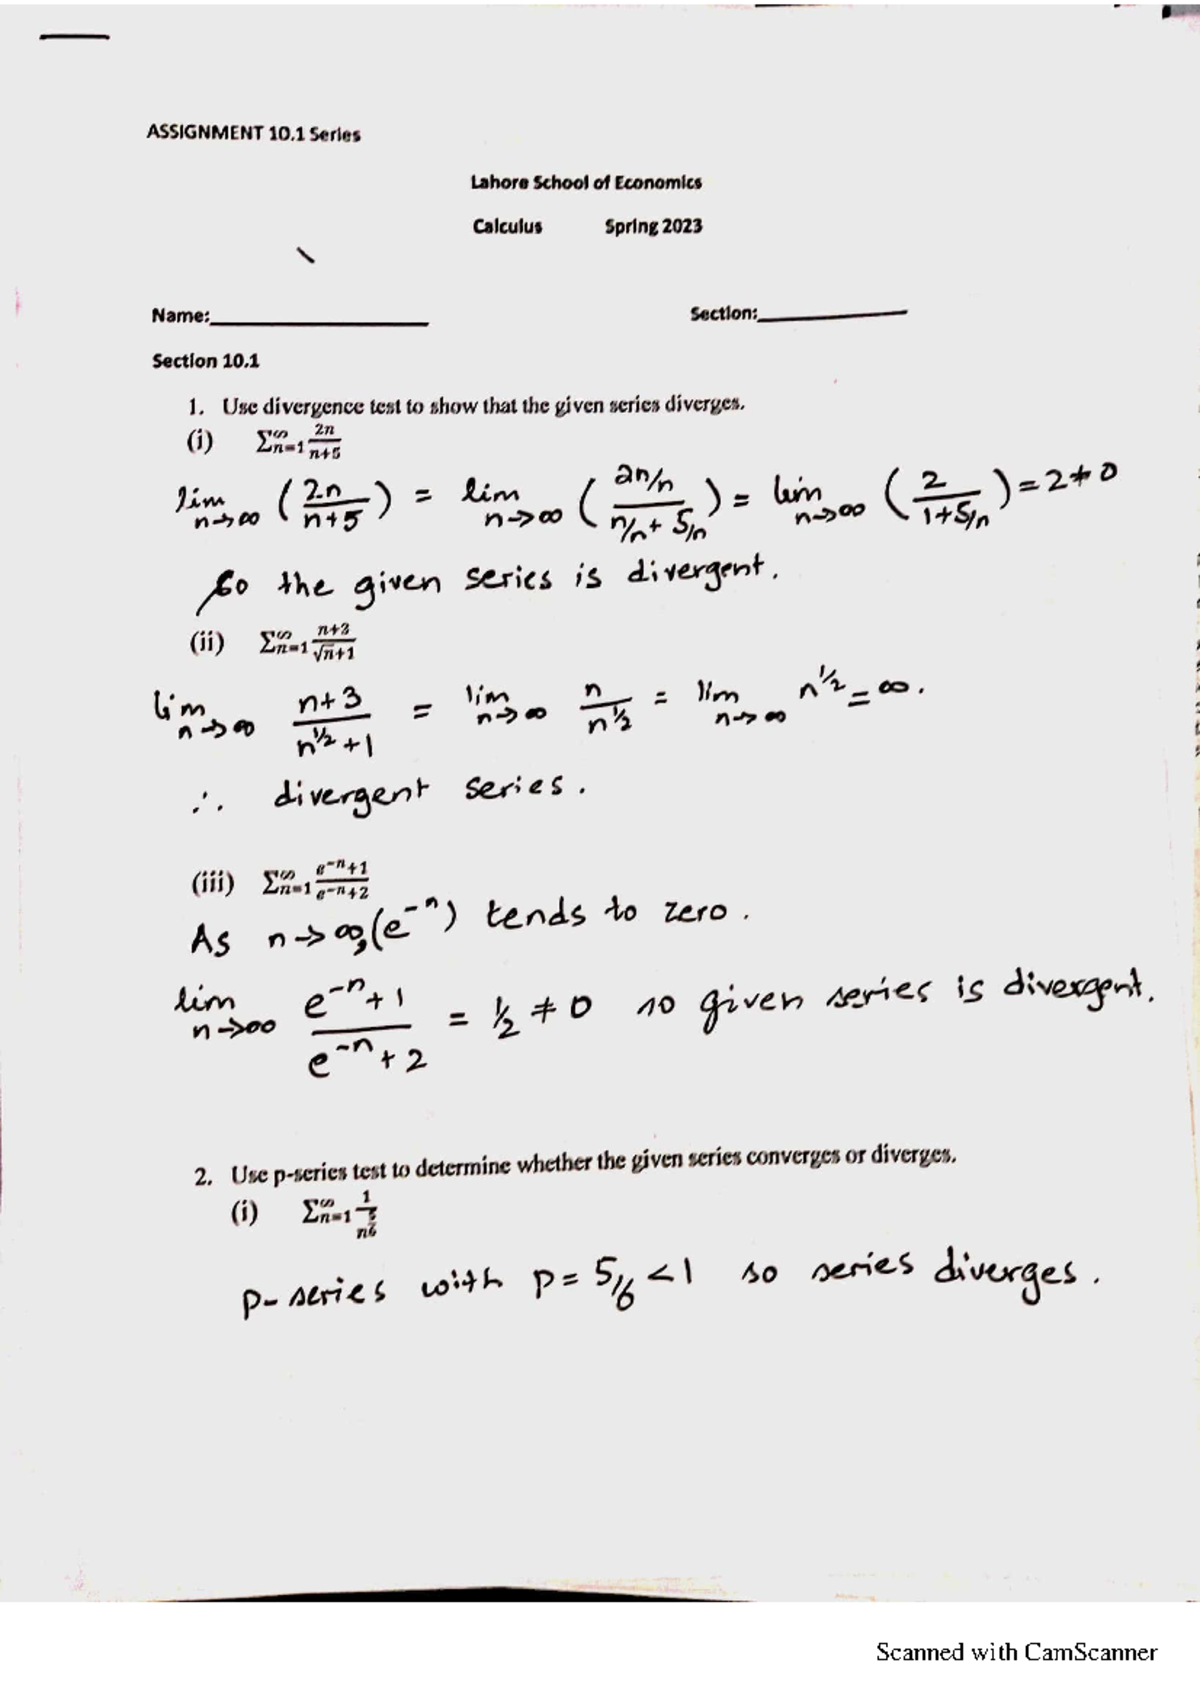 ASSIGNMENT 10.1 Series
Lahore School of Economics
Calculus Spring 2023
Name:____________ Section:____________
Section 10.1
1. Use divergence test to show that the given series diverges.
(i) ∑_{n=1}^{∞} 2n/(n+5)
lim_{n→∞} (2n/(n+5)) = lim_{n→∞} ((2n/n)/(n/n + 5/n)) = lim_{n→∞} (2/(1+5/n)) = 2 ≠ 0
So the given series is divergent.
(ii) ∑_{n=1}^{∞} (n+3)/(√n+1)
lim_{n→∞} (n+3)/(n^{1/2}+1) = lim_{n→∞} n/n^{1/2} = lim_{n→∞} n^{1/2} = ∞.
∴ divergent series.
(iii) ∑_{n=1}^{∞} (e^{-n}+1)/(e^{-n}+2)
As n→∞, (e^{-n}) tends to zero.
lim_{n→∞} (e^{-n}+1)/(e^{-n}+2) = 1/2 ≠ 0 so given series is divergent.
2. Use p-series test to determine whether the given series converges or diverges.
(i) ∑_{n=1}^{∞} 1/n^{5/6}
p-series with p = 5/6 < 1 so series diverges.
Scanned with CamScanner